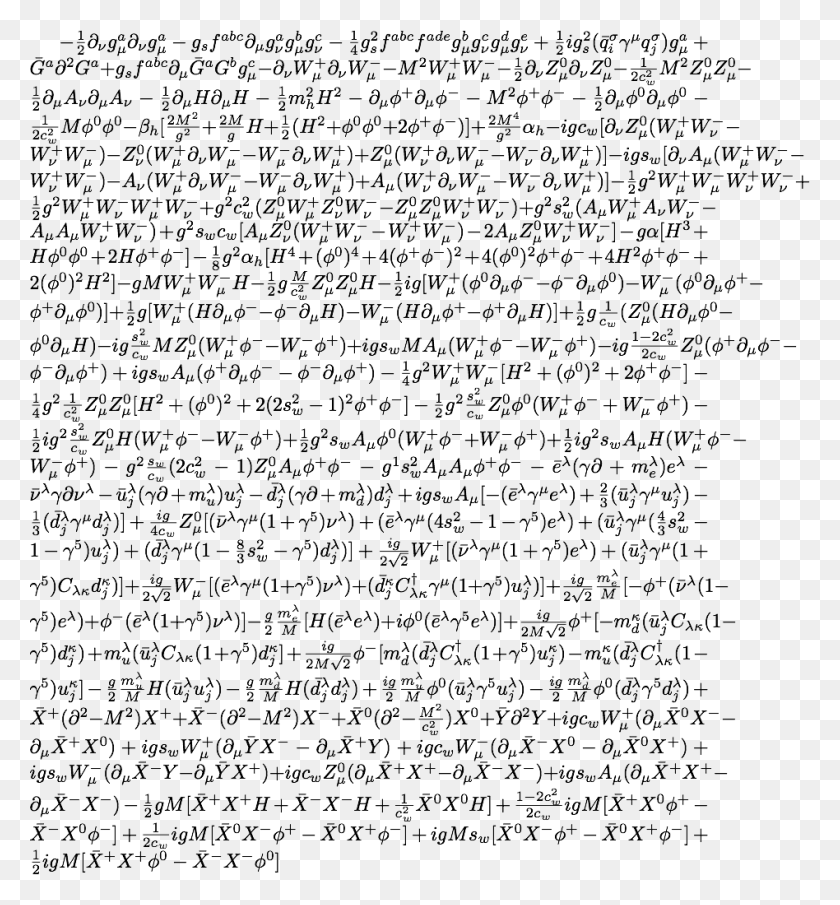 $-\frac{1}{2}\partial_\nu g^a_\mu \partial_\nu g^a_\mu - g_s f^{abc}\partial_\mu g^a_\nu g^b_\mu g^c_\nu - \frac{1}{4}g^2_s f^{abc}f^{ade} g^b_\mu g^c_\nu g^d_\mu g^e_\nu + \frac{1}{2}ig^2_s(\bar{q}^\sigma_i \gamma^\mu q^\sigma_j)g^a_\mu +$
$\bar{G}^a \partial^2 G^a + g_s f^{abc}\partial_\mu \bar{G}^a G^b g^c_\mu - \partial_\nu W^+_\mu \partial_\nu W^-_\mu - M^2 W^+_\mu W^-_\mu - \frac{1}{2}\partial_\nu Z^0_\mu \partial_\nu Z^0_\mu - \frac{1}{2c^2_w}M^2 Z^0_\mu Z^0_\mu -$
$\frac{1}{2}\partial_\mu A_\nu \partial_\mu A_\nu - \frac{1}{2}\partial_\mu H \partial_\mu H - \frac{1}{2}m^2_h H^2 - \partial_\mu \phi^+ \partial_\mu \phi^- - M^2 \phi^+ \phi^- - \frac{1}{2}\partial_\mu \phi^0 \partial_\mu \phi^0 -$
$\frac{1}{2c^2_w}M\phi^0\phi^0 - \beta_h[\frac{2M^2}{g^2} + \frac{2M}{g}H + \frac{1}{2}(H^2 + \phi^0\phi^0 + 2\phi^+\phi^-)] + \frac{2M^4}{g^2}\alpha_h - igc_w[\partial_\nu Z^0_\mu(W^+_\mu W^-_\nu -$
$W^+_\nu W^-_\mu) - Z^0_\nu(W^+_\mu \partial_\nu W^-_\mu - W^-_\mu \partial_\nu W^+_\mu) + Z^0_\mu(W^+_\nu \partial_\nu W^-_\mu - W^-_\nu \partial_\nu W^+_\mu)] - igs_w[\partial_\nu A_\mu(W^+_\mu W^-_\nu -$
$W^+_\nu W^-_\mu) - A_\nu(W^+_\mu \partial_\nu W^-_\mu - W^-_\mu \partial_\nu W^+_\mu) + A_\mu(W^+_\nu \partial_\nu W^-_\mu - W^-_\nu \partial_\nu W^+_\mu)] - \frac{1}{2}g^2 W^+_\mu W^-_\mu W^+_\nu W^-_\nu +$
$\frac{1}{2}g^2 W^+_\mu W^-_\nu W^+_\mu W^-_\nu + g^2c^2_w(Z^0_\mu W^+_\mu Z^0_\nu W^-_\nu - Z^0_\mu Z^0_\mu W^+_\nu W^-_\nu) + g^2s^2_w(A_\mu W^+_\mu A_\nu W^-_\nu -$
$A_\mu A_\mu W^+_\nu W^-_\nu) + g^2 s_w c_w[A_\mu Z^0_\nu(W^+_\mu W^-_\nu - W^+_\nu W^-_\mu) - 2A_\mu Z^0_\mu W^+_\nu W^-_\nu] - g\alpha[H^3 +$
$H\phi^0\phi^0 + 2H\phi^+\phi^-] - \frac{1}{8}g^2\alpha_h[H^4 + (\phi^0)^4 + 4(\phi^+\phi^-)^2 + 4(\phi^0)^2\phi^+\phi^- + 4H^2\phi^+\phi^- +$
$2(\phi^0)^2H^2] - gMW^+_\mu W^-_\mu H - \frac{1}{2}g\frac{M}{c^2_w}Z^0_\mu Z^0_\mu H - \frac{1}{2}ig[W^+_\mu(\phi^0\partial_\mu\phi^- - \phi^-\partial_\mu\phi^0) - W^-_\mu(\phi^0\partial_\mu\phi^+ -$
$\phi^+\partial_\mu\phi^0)] + \frac{1}{2}g[W^+_\mu(H\partial_\mu\phi^- - \phi^-\partial_\mu H) - W^-_\mu(H\partial_\mu\phi^+ - \phi^+\partial_\mu H)] + \frac{1}{2}g\frac{1}{c_w}(Z^0_\mu(H\partial_\mu\phi^0 -$
$\phi^0\partial_\mu H) - ig\frac{s^2_w}{c_w}MZ^0_\mu(W^+_\mu\phi^- - W^-_\mu\phi^+) + igs_w MA_\mu(W^+_\mu\phi^- - W^-_\mu\phi^+) - ig\frac{1-2c^2_w}{2c_w}Z^0_\mu(\phi^+\partial_\mu\phi^- -$
$\phi^-\partial_\mu\phi^+) + igs_w A_\mu(\phi^+\partial_\mu\phi^- - \phi^-\partial_\mu\phi^+) - \frac{1}{4}g^2W^+_\mu W^-_\mu[H^2 + (\phi^0)^2 + 2\phi^+\phi^-] -$
$\frac{1}{4}g^2\frac{1}{c^2_w}Z^0_\mu Z^0_\mu[H^2 + (\phi^0)^2 + 2(2s^2_w - 1)^2\phi^+\phi^-] - \frac{1}{2}g^2\frac{s^2_w}{c_w}Z^0_\mu\phi^0(W^+_\mu\phi^- + W^-_\mu\phi^+) -$
$\frac{1}{2}ig^2\frac{s^2_w}{c_w}Z^0_\mu H(W^+_\mu\phi^- - W^-_\mu\phi^+) + \frac{1}{2}g^2s_w A_\mu\phi^0(W^+_\mu\phi^- + W^-_\mu\phi^+) + \frac{1}{2}ig^2s_w A_\mu H(W^+_\mu\phi^- -$
$W^-_\mu\phi^+) - g^2\frac{s_w}{c_w}(2c^2_w - 1)Z^0_\mu A_\mu\phi^+\phi^- - g^1s^2_w A_\mu A_\mu\phi^+\phi^- - \bar{e}^\lambda(\gamma\partial + m^\lambda_e)e^\lambda -$
$\bar{\nu}^\lambda\gamma\partial\nu^\lambda - \bar{u}^\lambda_j(\gamma\partial + m^\lambda_u)u^\lambda_j - \bar{d}^\lambda_j(\gamma\partial + m^\lambda_d)d^\lambda_j + igs_w A_\mu[-(\bar{e}^\lambda\gamma^\mu e^\lambda) + \frac{2}{3}(\bar{u}^\lambda_j\gamma^\mu u^\lambda_j) -$
$\frac{1}{3}(\bar{d}^\lambda_j\gamma^\mu d^\lambda_j)] + \frac{ig}{4c_w}Z^0_\mu[(\bar{\nu}^\lambda\gamma^\mu(1 + \gamma^5)\nu^\lambda) + (\bar{e}^\lambda\gamma^\mu(4s^2_w - 1 - \gamma^5)e^\lambda) + (\bar{u}^\lambda_j\gamma^\mu(\frac{4}{3}s^2_w -$
$1 - \gamma^5)u^\lambda_j) + (\bar{d}^\lambda_j\gamma^\mu(1 - \frac{8}{3}s^2_w - \gamma^5)d^\lambda_j)] + \frac{ig}{2\sqrt{2}}W^+_\mu[(\bar{\nu}^\lambda\gamma^\mu(1 + \gamma^5)e^\lambda) + (\bar{u}^\lambda_j\gamma^\mu(1 +$
$\gamma^5)C_{\lambda\kappa}d^\kappa_j)] + \frac{ig}{2\sqrt{2}}W^-_\mu[(\bar{e}^\lambda\gamma^\mu(1 + \gamma^5)\nu^\lambda) + (\bar{d}^\kappa_j C^\dagger_{\lambda\kappa}\gamma^\mu(1 + \gamma^5)u^\lambda_j)] + \frac{ig}{2\sqrt{2}}\frac{m^\lambda_e}{M}[-\phi^+(\bar{\nu}^\lambda(1 -$
$\gamma^5)e^\lambda) + \phi^-(\bar{e}^\lambda(1 + \gamma^5)\nu^\lambda)] - \frac{g}{2}\frac{m^\lambda_e}{M}[H(\bar{e}^\lambda e^\lambda) + i\phi^0(\bar{e}^\lambda\gamma^5e^\lambda)] + \frac{ig}{2M\sqrt{2}}\phi^+[-m^\kappa_d(\bar{u}^\lambda_j C_{\lambda\kappa}(1 -$
$\gamma^5)d^\kappa_j) + m^\lambda_u(\bar{u}^\lambda_j C_{\lambda\kappa}(1 + \gamma^5)d^\kappa_j] + \frac{ig}{2M\sqrt{2}}\phi^-[m^\lambda_d(\bar{d}^\lambda_j C^\dagger_{\lambda\kappa}(1 + \gamma^5)u^\kappa_j) - m^\kappa_u(\bar{d}^\lambda_j C^\dagger_{\lambda\kappa}(1 -$
$\gamma^5)u^\kappa_j] - \frac{g}{2}\frac{m^\lambda_u}{M}H(\bar{u}^\lambda_j u^\lambda_j) - \frac{g}{2}\frac{m^\lambda_d}{M}H(\bar{d}^\lambda_j d^\lambda_j) + \frac{ig}{2}\frac{m^\lambda_u}{M}\phi^0(\bar{u}^\lambda_j\gamma^5u^\lambda_j) - \frac{ig}{2}\frac{m^\lambda_d}{M}\phi^0(\bar{d}^\lambda_j\gamma^5d^\lambda_j) +$
$\bar{X}^+(\partial^2 - M^2)X^+ + \bar{X}^-(\partial^2 - M^2)X^- + \bar{X}^0(\partial^2 - \frac{M^2}{c^2_w})X^0 + \bar{Y}\partial^2Y + igc_w W^+_\mu(\partial_\mu\bar{X}^0X^- -$
$\partial_\mu\bar{X}^+X^0) + igs_w W^+_\mu(\partial_\mu\bar{Y}X^- - \partial_\mu\bar{X}^+Y) + igc_w W^-_\mu(\partial_\mu\bar{X}^-X^0 - \partial_\mu\bar{X}^0X^+) +$
$igs_w W^-_\mu(\partial_\mu\bar{X}^-Y - \partial_\mu\bar{Y}X^+) + igc_w Z^0_\mu(\partial_\mu\bar{X}^+X^+ - \partial_\mu\bar{X}^-X^-) + igs_w A_\mu(\partial_\mu\bar{X}^+X^+ -$
$\partial_\mu\bar{X}^-X^-) - \frac{1}{2}gM[\bar{X}^+X^+H + \bar{X}^-X^-H + \frac{1}{c^2_w}\bar{X}^0X^0H] + \frac{1-2c^2_w}{2c_w}igM[\bar{X}^+X^0\phi^+ -$
$\bar{X}^-X^0\phi^-] + \frac{1}{2c_w}igM[\bar{X}^0X^-\phi^+ - \bar{X}^0X^+\phi^-] + igMs_w[\bar{X}^0X^-\phi^+ - \bar{X}^0X^+\phi^-] +$
$\frac{1}{2}igM[\bar{X}^+X^+\phi^0 - \bar{X}^-X^-\phi^0]$